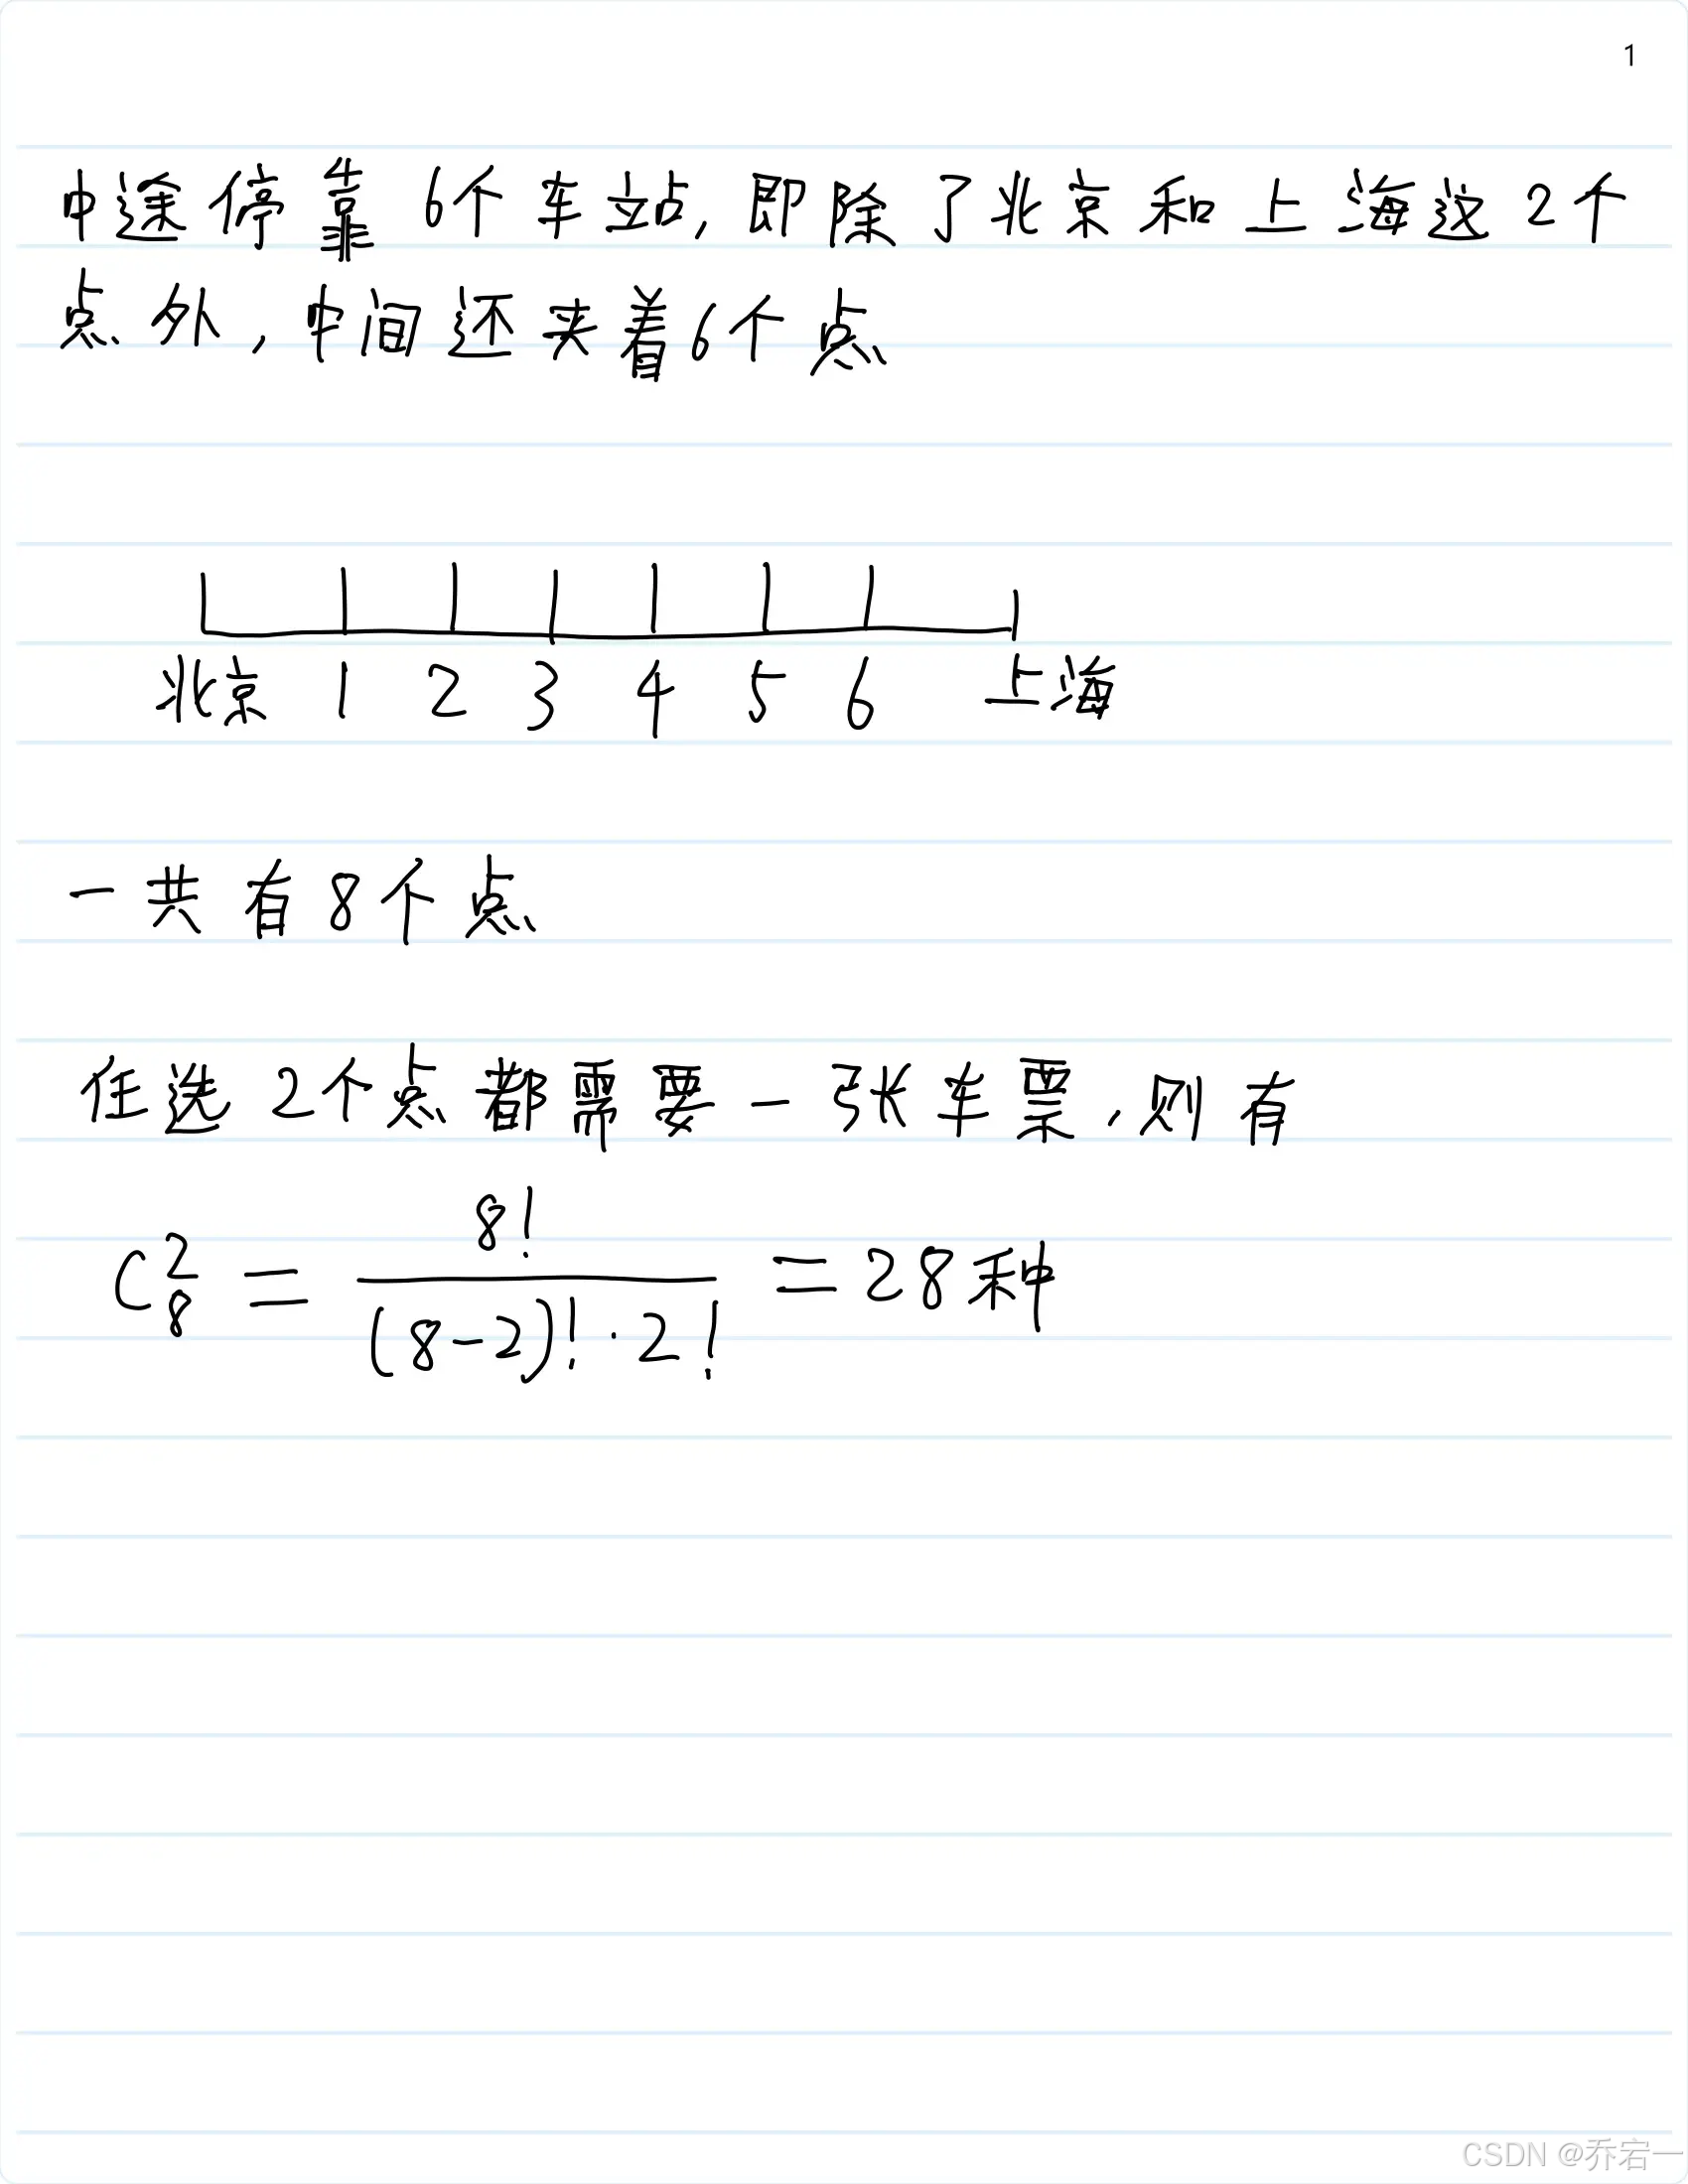 1
中途停靠6个车站,即除了北京和上海这2个
点外,中间还夹着6个点
北京 1 2 3 4 5 6 上海
一共有8个点
任选2个点都需要一张车票,则有
C₈² = 8! / (8-2)!·2! = 28种
CSDN @乔宕一